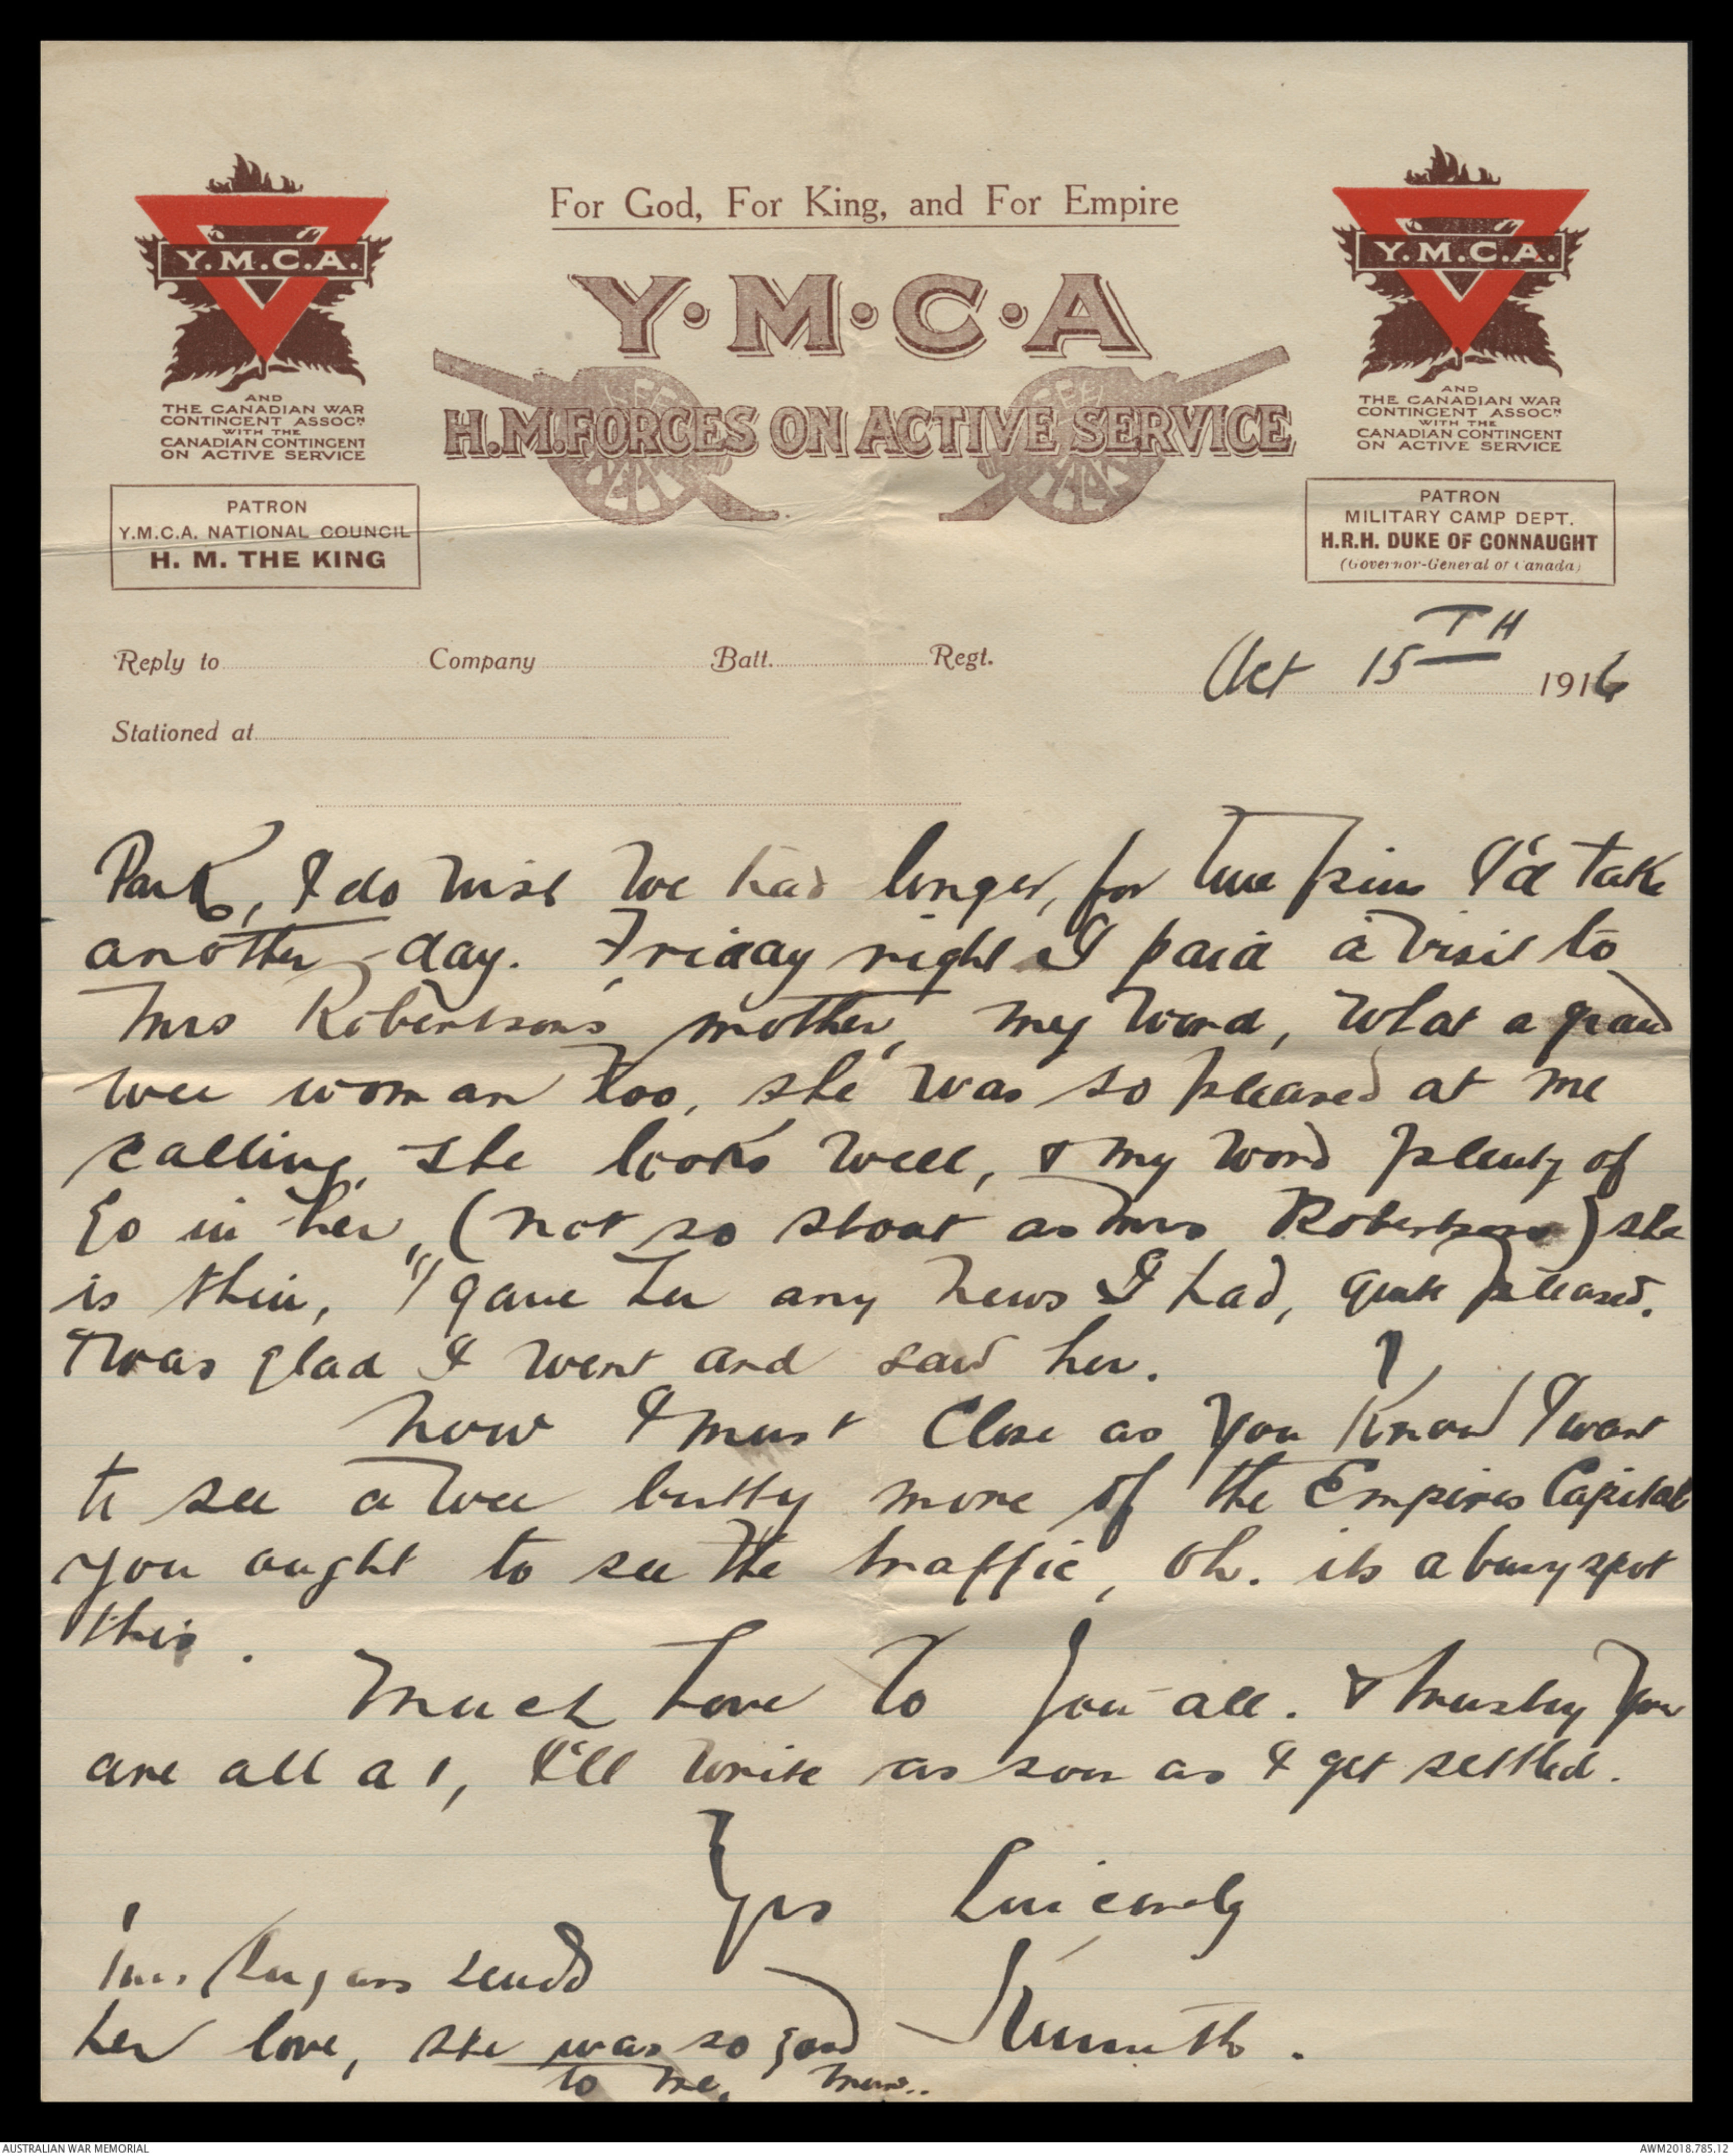 For God, For King, and For Empire
Y.M.C.A.
Y·M·C·A
Y.M.C.A.
H.M. FORCES ON ACTIVE SERVICE
AND
THE CANADIAN WAR
CONTINGENT ASSOCN
WITH THE
CANADIAN CONTINGENT
ON ACTIVE SERVICE
AND
THE CANADIAN WAR
CONTINGENT ASSOCN
WITH THE
CANADIAN CONTINGENT
ON ACTIVE SERVICE
PATRON
Y.M.C.A. NATIONAL COUNCIL
H. M. THE KING
PATRON
MILITARY CAMP DEPT.
H.R.H. DUKE OF CONNAUGHT
(Governor-General of Canada)
Reply to Company Batt. Regt. Oct 15TH 1916
Stationed at
Park, I do wish we had longer, for two pins I'd take
another day. Friday night I paid a visit to
Mrs Robertsons mother, my word, what a grand
wee woman too, she was so pleased at me
calling, she looks well, & my word plenty of
Go in her, (not so stout as Mrs Robertson) she
is thin, I gave her any news I had, quite pleased.
Twas glad I went and saw her.
Now I must close as you know I want
to see a wee bitty more of the Empires Capital
you ought to see the traffic, oh. its a busy spot
this.
Much Love to you all. & trusting you
are all a 1, I'll write as soon as I get settled.
Yrs Sincerely
Kenneth.
Mrs sends
her love, she was so good
to me.
AUSTRALIAN WAR MEMORIAL
AWM2018.785.12